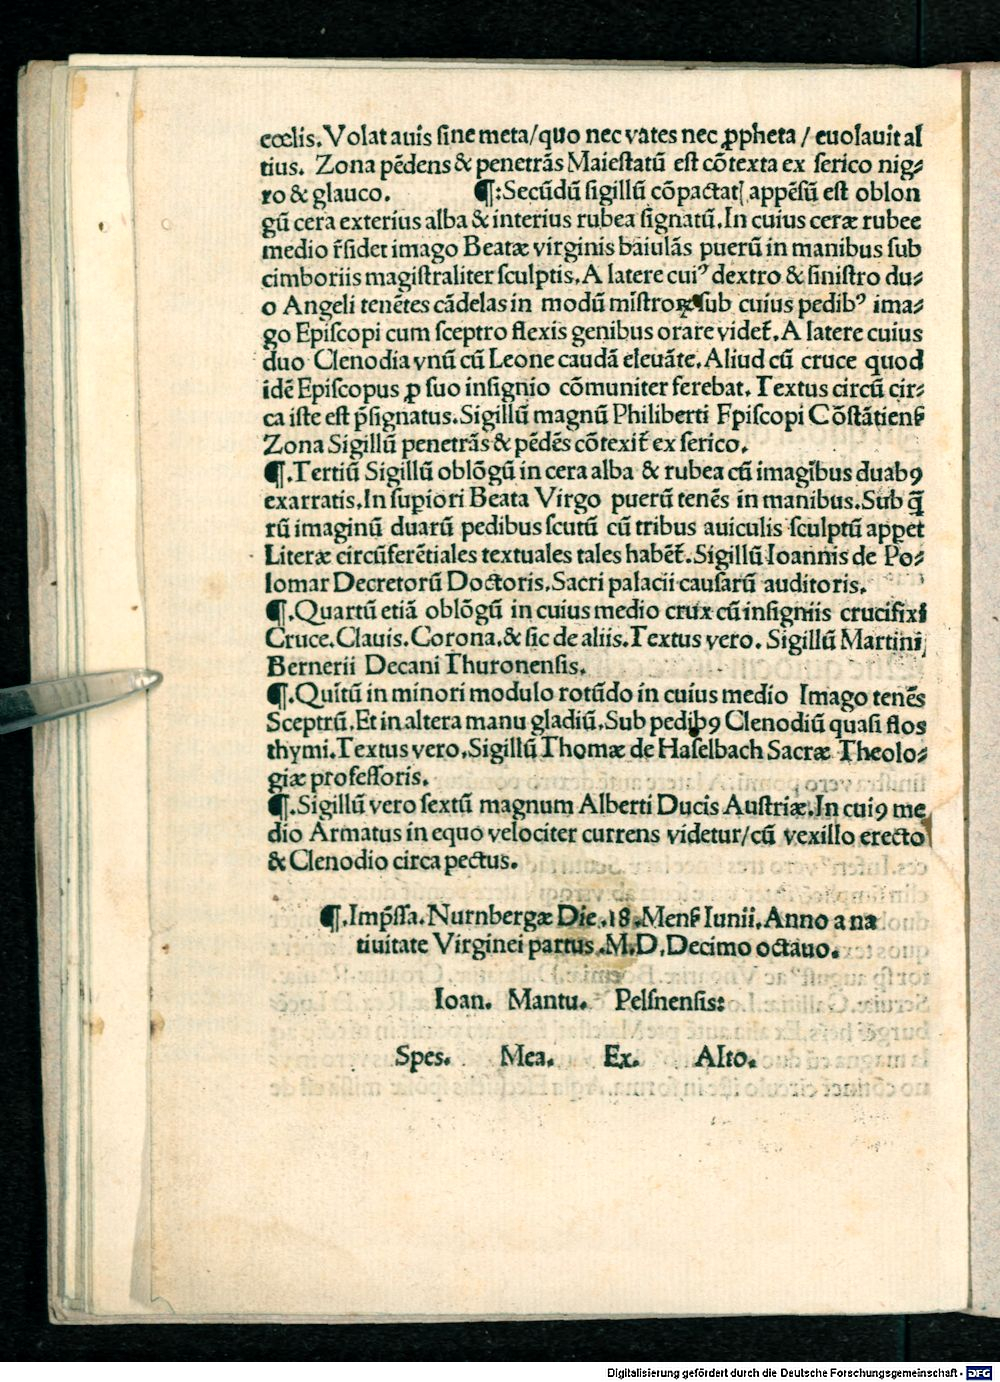 ecœlis. Volat auis sine meta/quo nec vates nec ꝓpheta / euolauit al
tius. Zona pēdens & penetrās Maiestatū est cōtexta ex serico nig⸗
ro & glauco. ¶:Secūdū sigillū cōpactat appēsū est oblon
gū cera exterius alba & interius rubea signatū. In cuius ceræ rubee
medio r̄sidet imago Beatæ virginis baiulās puerū in manibus sub
cimboriis magistraliter sculptis. A latere cuiꝰ dextro & sinistro du⸗
o Angeli tenētes cādelas in modū mīstroꝝ sub cuius pedibꝰ ima⸗
go Episcopi cum sceptro flexis genibus orare videt̄. A latere cuius
duo Clenodia vnū cū Leone caudā eleuāte. Aliud cū cruce quod
idē Episcopus ꝑ suo insignio cōmuniter ferebat. Textus circū cir⸗
ca iste est p̄signatus. Sigillū magnū Philiberti Episcopi Cōstātiens̄
Zona Sigillū penetrās & pēdēs cōtexit̄ ex serico.
¶. Tertiū Sigillū oblōgū in cera alba & rubea cū imagībus duabꝯ
exarratis. In suꝑiori Beata Virgo puerū tenēs in manibus. Sub q̄
rū imaginū duarū pedibus scutū cū tribus auiculis sculptū apꝑet
Literæ circūferētiales textuales tales habēt̄. Sigillū Ioannis de Po⸗
lomar Decretorū Doctoris. Sacri palacii causarū auditoris.
¶. Quartū etiā oblōgū in cuius medio crux cū insigniis crucifixi
Cruce. Clauis. Corona. & sic de aliis. Textus vero. Sigillū Martini
Bernerii Decani Thuronensis.
¶. Quītū in minori modulo rotūdo in cuius medio Imago tenēs
Sceptrū. Et in altera manu gladiū. Sub pedibꝯ Clenodiū quasi flos
thymi. Textus vero. Sigillū Thomæ de Haselbach Sacræ Theolo⸗
giæ professoris.
¶. Sigillū vero sextū magnum Alberti Ducis Austriæ. In cuiꝯ me
dio Armatus in equo velociter currens videtur/cū vexillo erecto
& Clenodio circa pectus.
¶. Imp̄ssa. Nurnbergæ Die. 18. Mens̄ Iunii. Anno a na
tiuitate Virginei partus. M.D. Decimo octauo.
Ioan. Mantu. Pelsnensis:
Spes. Mea. Ex. Alto.
Digitalisierung gefördert durch die Deutsche Forschungsgemeinschaft - DFG